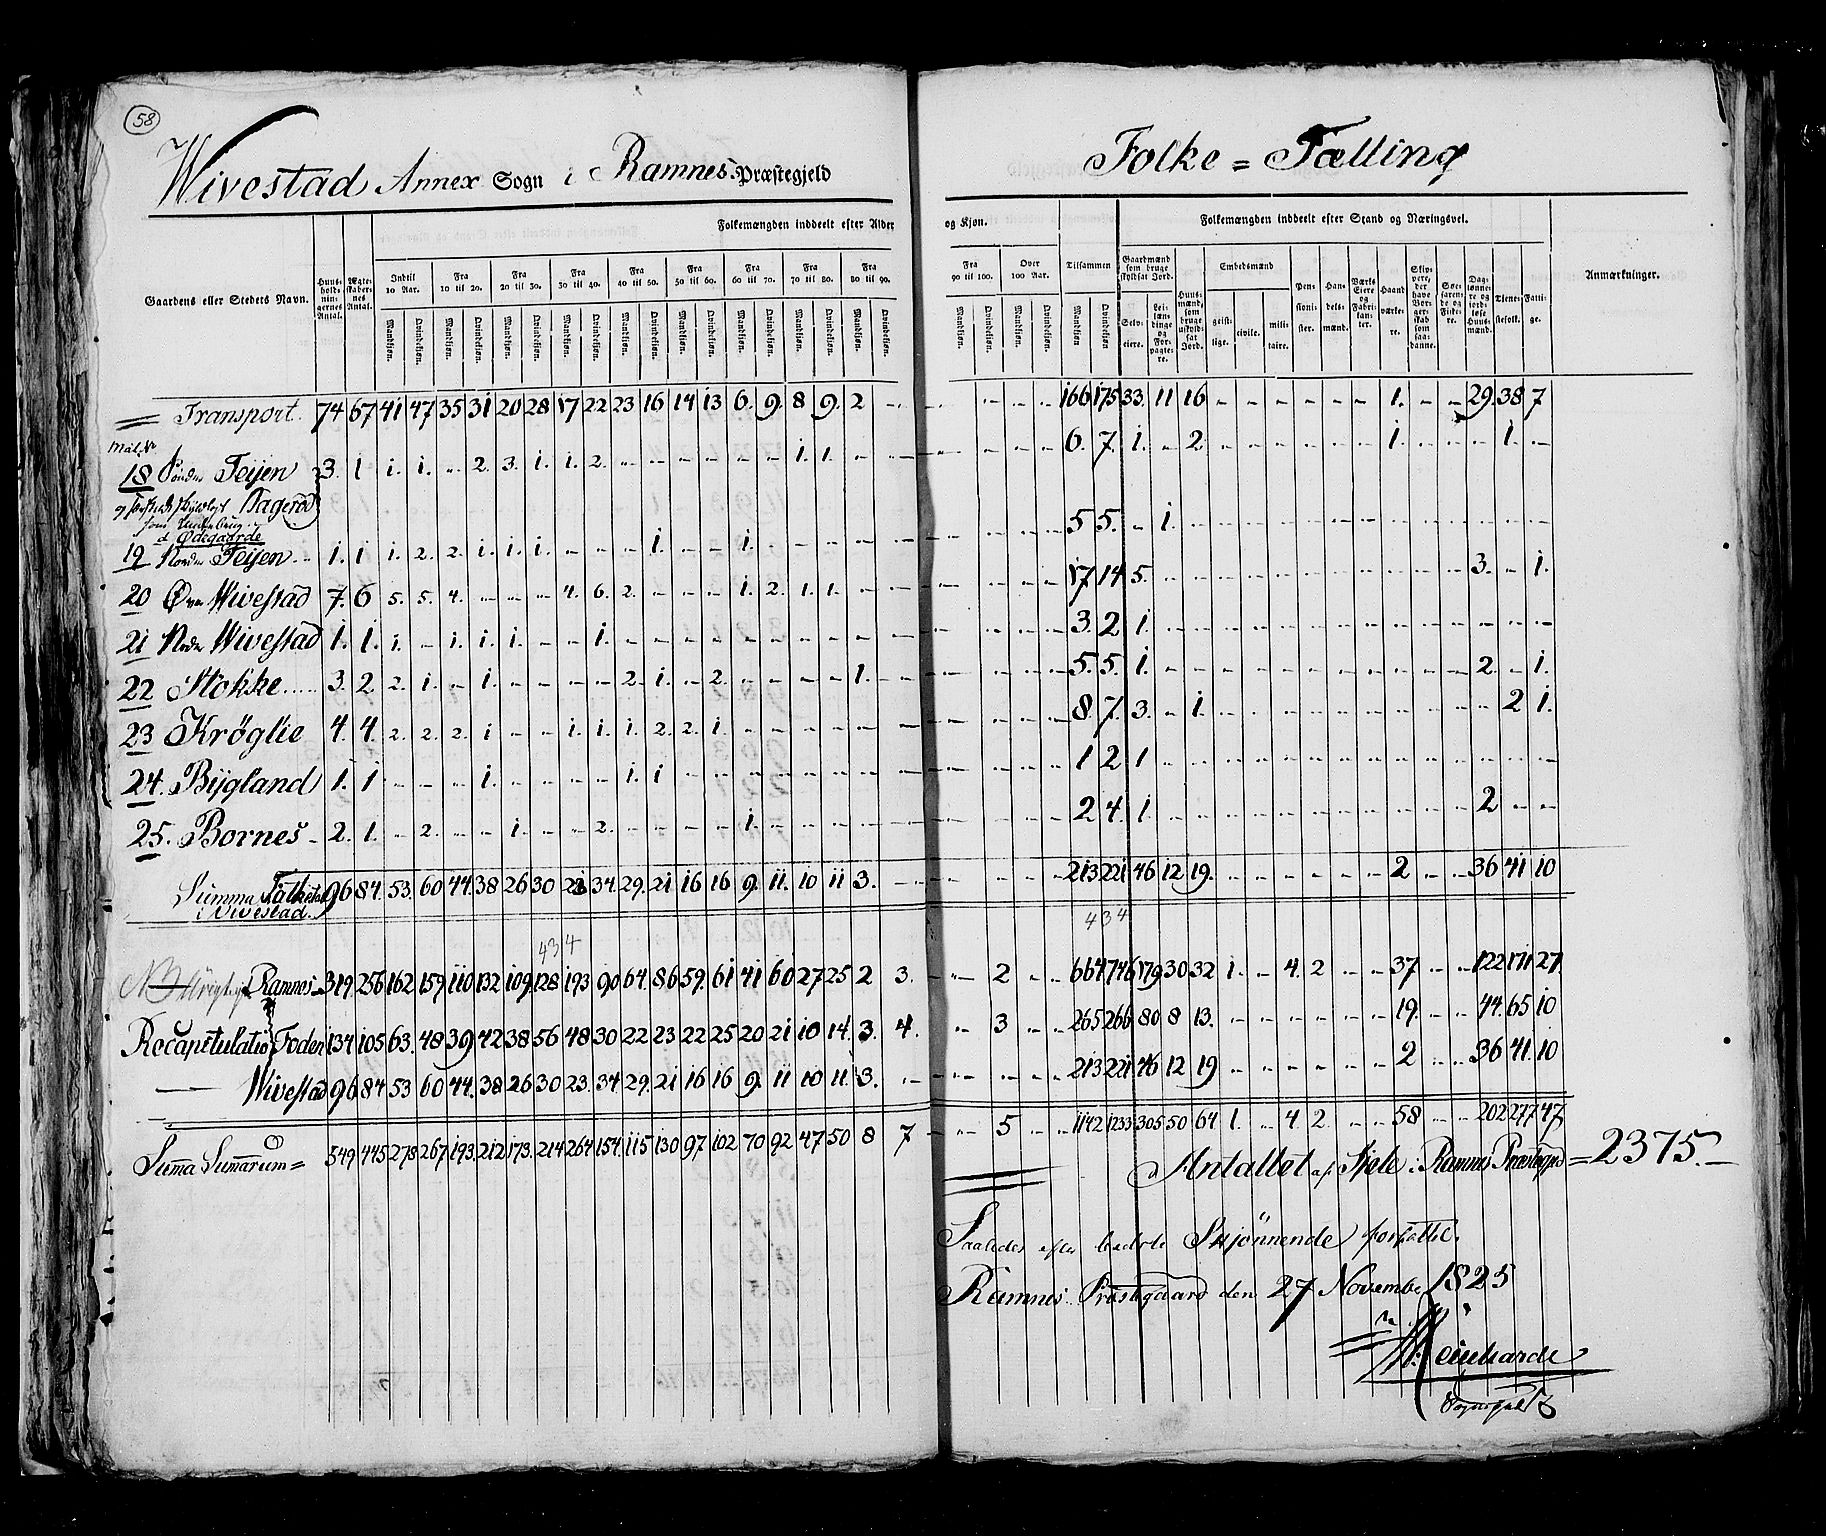 58
Wivestad Annex Sogn i Ramnes Præstegjeld
Folke = Tælling
Gaardens eller Stedets Navn.
Huusholdningernes Antal.
Ægteskabernes Antal.
Folkemængden inddeelt efter Alder og Kjøn.
Indtil 10 Aar. Fra 10 til 20. Fra 20 til 30. Fra 30 til 40. Fra 40 til 50. Fra 50 til 60. Fra 60 til 70. Fra 70 til 80. Fra 80 til 90. Fra 90 til 100. Over 100 Aar. Tilsammen
Mandkjøn. Qvindekjøn.
Folkemængden inddeelt efter Stand og Næringsvei.
Gaardmænd som bruge skyldsat Jord. Selveiere. Leilændinge og Forpagtere.
Huusmænd, som bruge uskyldsat Jord.
Embedsmænd geistlige. civile. militaire.
Pensionister.
Handelsmænd.
Værks Eiere og Fabrikanter.
Haandværkere.
Skippere, der have Borgerskab som saadanne.
Søefarende og Fiskere.
Daglønnere og jordløse Huusmænd.
Tjenestefolk.
Fattige.
Anmærkninger.
Transport. 74 67 41 47 35 31 20 28 17 22 23 16 14 13 6. 9. 8 9. 2 166 175 33. 11 16 1. 29. 38 7
Mal. Nr
18 Søndre Teijen 3. 1 1. 1. 2. 3. 1. 1. 2. 1. 1. 6. 7. 1. 2. 1. 1.
Bagerød
Ødegaarde
19 Nordre Teijen 1. 1 1. 2. 2. 1. 1. 1. 1. 1. 5 5. 1.
20 Øvre Wivestad 7. 6 5. 5. 4. 4. 6. 2. 1. 2. 1. 1. 17 14 5. 3. 1.
21 Nedre Wivestad 1. 1. 1. 1. 1. 1. 1. 3. 2 1.
22 Stokke 3. 2 2. 1. 1. 2. 1. 2. 1. 5. 5. 1. 2. 1.
23 Krøglie 4. 4. 2. 2. 2. 1 1. 1. 1. 2. 2. 1. 8. 7. 3. 1. 2 1.
24. Bijgland 1. 1 1. 1. 1 1 2 1
25. Bornes 2. 1. 2. 1. 2. 1. 2 4. 1. 2
Summa Folketal i Wivestad. 96 84. 53. 60 44. 38 26 30 23 34. 29. 21 16 16 9. 11. 10 11 3. 213 221 46 12 19. 2 36 41 10
434
434
NB Ramnes 319. 256 162 159 110 132 109. 128 193 90 64. 86 59. 61 41 60 27 25 2 3. 2 664 746 179 30 32 1. 4. 2 37 122 171 27
Recapitulatio Foden 134 105 63. 48 39 42 38 56 48 30 22 23 22 25 20 21 10 14. 3. 4. 3 265 266 80 8 13. 19. 44. 65 10
Wivestad 96 84 53 60 44. 38 26 30 23. 34. 29. 21 16 16 9. 11 10 11. 3. 213 221 46 12 19 2 36 41. 10
Summa Summarum = 549 445 278 267 193. 212 173. 214 264 154. 115 130 97 102 70 92 47 50 8 7 5 1142 1233 305 50 64 1. 4 2 58 202 277 47
Antallet af Sjele i Ramnes Præstegjeld = 2375.
Saaledes efter bedste Skjønnende forfattet.
Ramnes Præstegaard den 27 November 1825
Meinhardt
Sognepræst